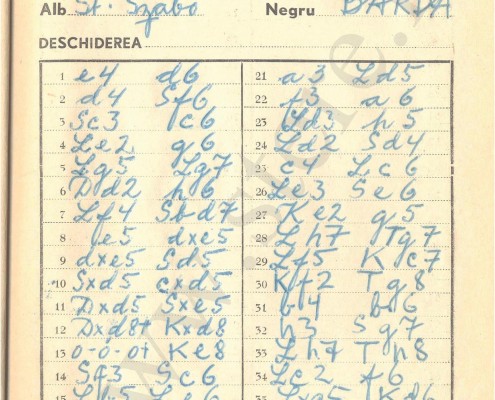 Alb St. Szabo Negru BARDA
DESCHIDEREA
1 e4 d6
2 d4 Sf6
3 Sc3 c6
4 Le2 g6
5 Lg5 Lg7
6 Dd2 h6
7 Lf4 Sbd7
8 e5 dxe5
9 dxe5 Sd5
10 Sxd5 cxd5
11 Dxd5 Sxe5
12 Dxd8+ Kxd8
13 0-0-0+ Ke8
14 Sf3 Sc6
15
21 a3 Ld5
22 f3 a6
23 Ld3 h5
24 Ld2 Sd4
25 c4 Lc6
26 Le3 Se6
27 Ke2 g5
28 Lh7 Tg7
29 Lf5 Kc7
30 Kf2 Tg8
31 b4 b6
32 h3 Sg7
33 Lh7 Th8
34 Lc2 f6
35 Lxg5 Kd6